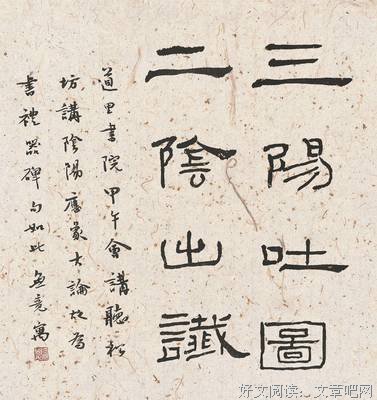 三陽吐圖
二陰出讖
道里書院甲午會講聽松
坊講陰陽應象大論
書禮器碑句如此 無竟寓
好文阅读：文章吧网